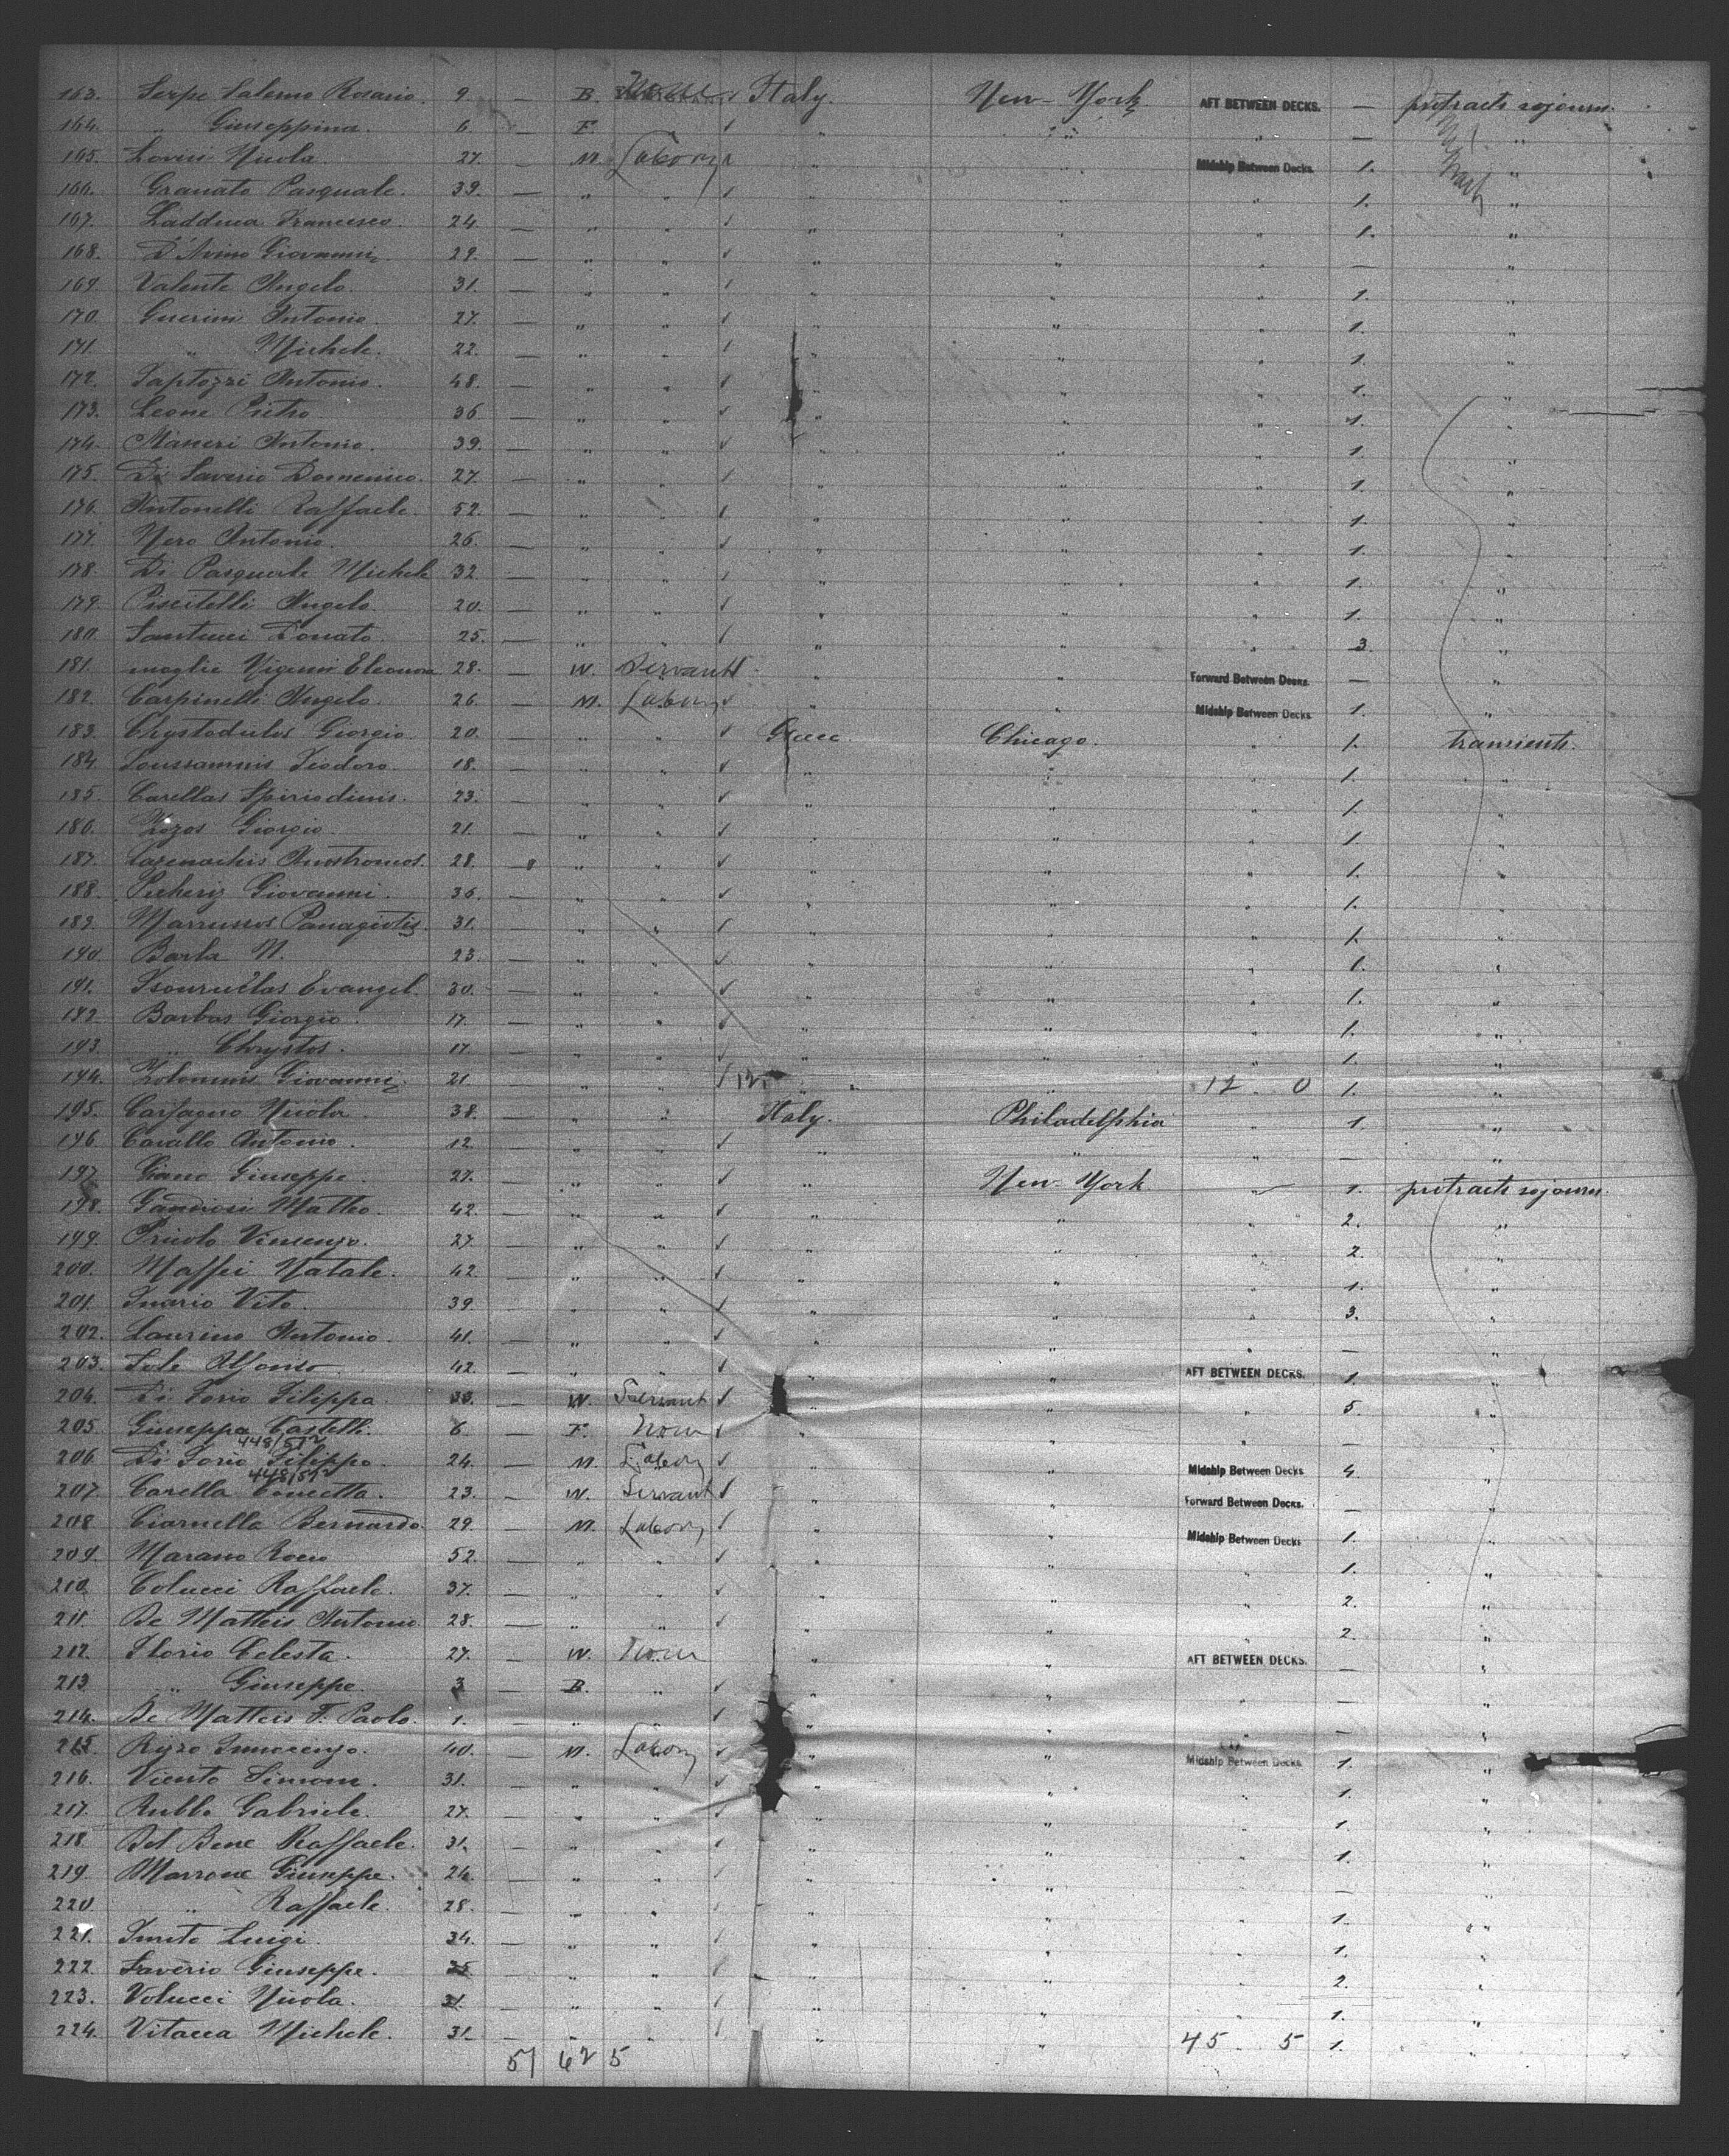 163. Serpe Salerno Rosario. 9. — B. None Italy. New-York. AFT BETWEEN DECKS. — protracts sojourn.
164. " Giuseppina. 6. — F. " " " — "
165. Nicola. 27. M. Labory " " Midship Between Decks. 1. "
166. Granato Pasquale. 39. — " " " " " 1. "
167. Ladduca Francesco. 24. — " " " " " 1. "
168. D'Avino Giovanni. 29. — " " " " " — "
169. Valente Angelo. 31. — " " " " " 1. "
170. Guerini Antonio. 27. — " " " " " 1. "
171. " Michele. 22. — " " " " " 1. "
172. Antonio. 48. — " " " " " 1. "
173. Leone Pietro. 36. — " " " " " 1. "
174. Antonio. 39. — " " " " " 1. "
175. Di Saverio Domenico. 27. — " " " " " 1. "
176. Antonelli Raffaele. 52. — " " " " " 1. "
177. Nero Antonio. 26. — " " " " " 1. "
178. Di Pasquale Michele 32. — " " " " " 1. "
179. Piscitelli Angelo. 20. — " " " " " 1. "
180. Santucci Donato. 25. — " " " " " 3. "
181. moglie Eleonora 28. — W. Servant " " Forward Between Decks. — "
182. Carpinelli Angelo. 26. — M. Labory " " Midship Between Decks 1. "
183. Chystodulos Giorgio. 20. — " " Greece. Chicago. " 1. transient.
184. Teodoro. 18. — " " " " " 1. "
185. Carellas Spiriodinis. 23. — " " " " " 1. "
186. Zozos Giorgio. 21. — " " " " " 1. "
187. 28. — " " " " " 1. "
188. Giovanni. 36. — " " " " " 1. "
189. Panagiotis. 31. — " " " " " 1. "
190. Barla N. 23. — " " " " " 1. "
191. Evangel. 30. — " " " " " 1. "
192. Barbas Giorgio. 17. — " " " " " 1. "
193. " Chrystos. 17. — " " " " " 1. "
194. Giovanni. 21 " " 12 " " 12 0 1. "
195. Carfagno Nicola. 38. — " " Italy. Philadelphia " 1. "
196 Cavallo Antonio. 12. — " " " " — "
197. Giano Giuseppe. 27. — " " " New-York. " 1. protracts sojourn.
198. Matteo. 42. — " " " " " 2. "
199. Vincenzo. 27. — " " " " " 2. "
200. Maffei Natale. 42. — " " " " " 1. "
201. Vito. 39. " " " " " 3. "
202. Laurino Antonio. 41. — " " " " " — "
203. Sole Alfonso 42. — " " " " AFT BETWEEN DECKS. 1. "
204. Di Iorio Filippa. 33. — W. Servant " " " 5. "
205. Giuseppa Castelli. 6. — F. None " " " — "
448/512
206. Di Iorio Filippo. 24. — M. Labory " " Midship Between Decks 4. "
448/512
207. Carella Concetta. 23. — W. Servant " " Forward Between Decks. — "
208 Ciarnella Bernardo. 29. — M. Labory " " Midship Between Decks 1. "
209. Marano Rocco 52. — " " " " " 1. "
210. Colucci Raffaele. 37. — " " " " " 2. "
211. De Matteis Antonio. 28. — " " " " " 2. "
212. Florio Celesta. 27. — W. None " AFT BETWEEN DECKS. — "
213. " Giuseppe. 3 — B. " " " " — "
214. De Matteis F. Paolo. 1. — " " " " " — "
215 Rizzo Innocenzo. 40. — M. Labory " " Midship Between Decks 1. "
216. Viento Simone. 31. — " " " " " 1. "
217. Rubbo Gabriele. 27. — " " " " " 1. "
218. Del Bene Raffaele. 31. — " " " " " 1. "
219. Marrone Giuseppe. 24. — " " " " " — "
220. " Raffaele. 28. — " " " " " 1. "
221. Luigi. 34. — " " " " " 1. "
222. Saverio Giuseppe. 35 — " " " " " 2. "
223. Volucci Nicola. 31. — " " " " " 1. "
224. Vitacca Michele. 31. — " " " " 45 5 1. "
57 62 5